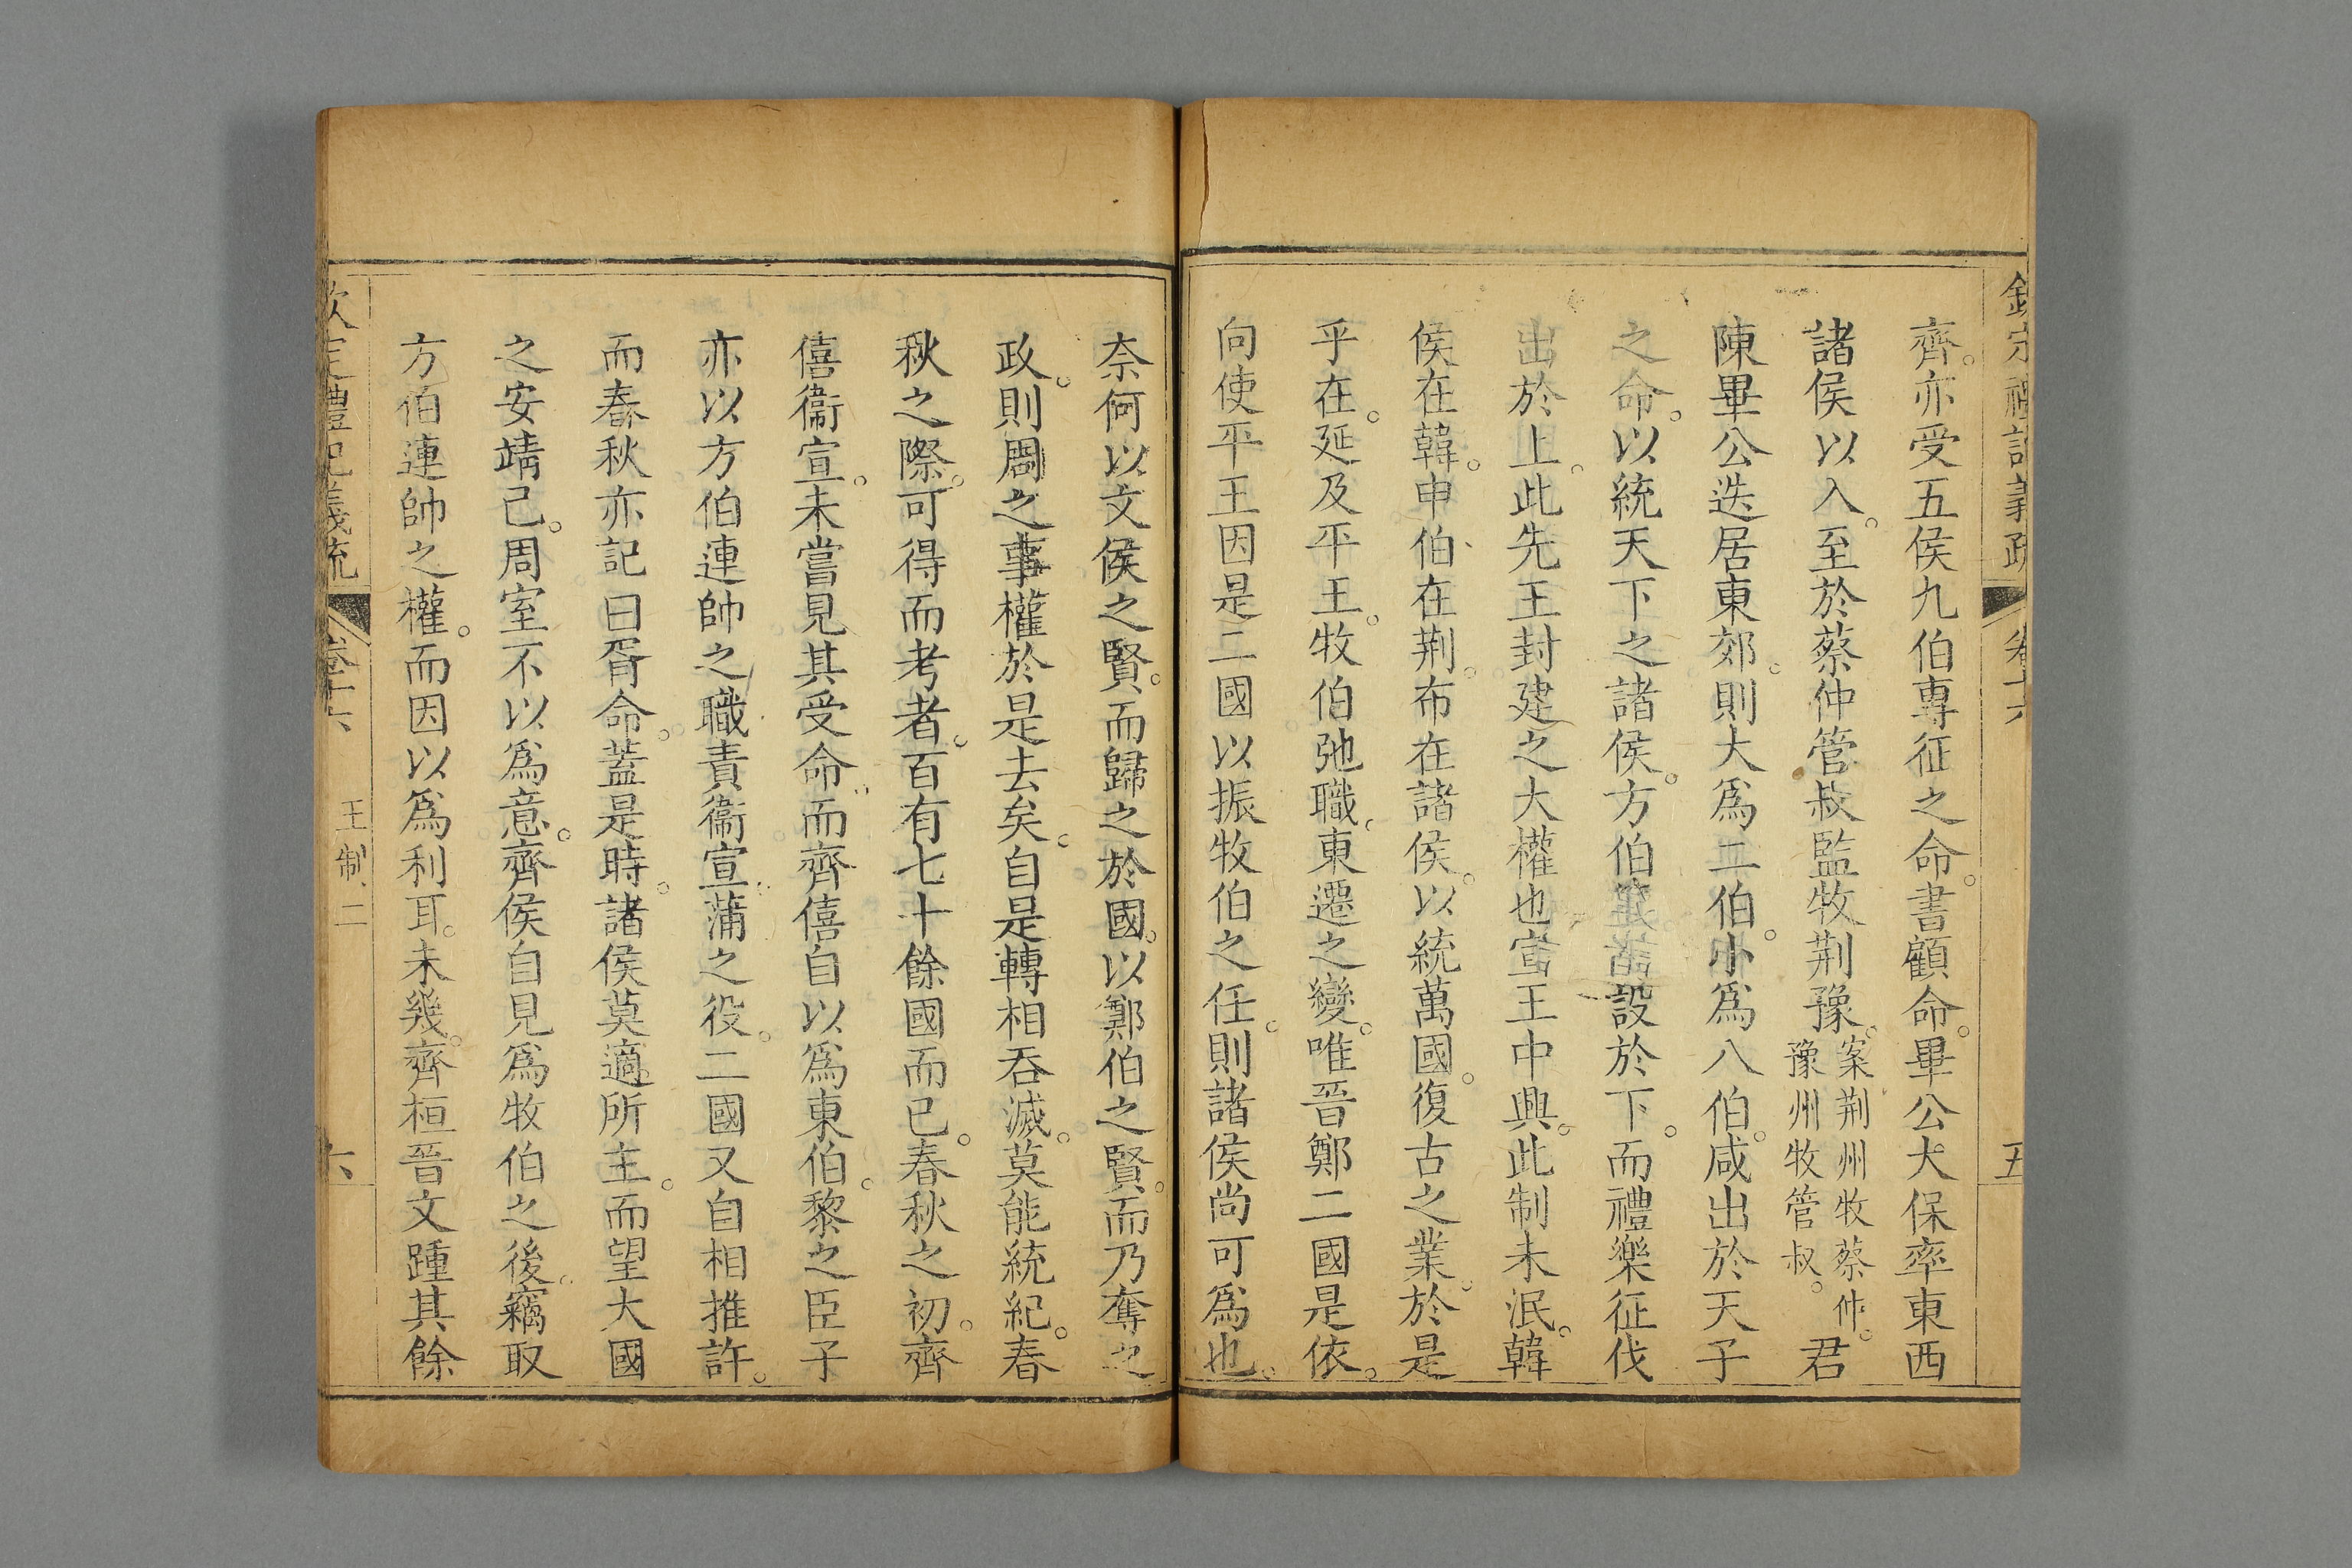 欽定禮記義疏 卷十六 五
齊。亦受五侯九伯專征之命。書顧命。畢公大保率東西
諸侯以入。至於蔡仲管叔監牧荆豫。案荆州牧蔡仲。豫州牧管叔。君
陳畢公迭居東郊。則大爲二伯。小爲八伯。咸出於天子
之命。以統天下之諸侯。方伯設於下。而禮樂征伐
出於上。此先王封建之大權也宣王中興。此制未泯。韓
侯在韓。申伯在荆。布在諸侯。以統萬國。復古之業。於是
乎在。延及平王。牧伯弛職。東遷之變。唯晉鄭二國是依。
向使平王因是二國以振牧伯之任。則諸侯尚可爲也。
奈何以文侯之賢。而歸之於國。以鄭伯之賢。而乃奪之
政。則周之事權於是去矣。自是轉相吞滅。莫能統紀。春
秋之際。可得而考者。百有七十餘國而已。春秋之初。齊
僖衞宣。未嘗見其受命。而齊僖自以爲東伯。黎之臣子
亦以方伯連帥之職責衞宣。蒲之役。二國又自相推許。
而春秋亦記曰胥命。蓋是時。諸侯莫適所主。而望大國
之安靖己。周室不以爲意。齊侯自見爲牧伯之後。竊取
方伯連帥之權。而因以爲利耳。未幾。齊桓晉文踵其餘
欽定禮記義疏 卷十六 王制二 六